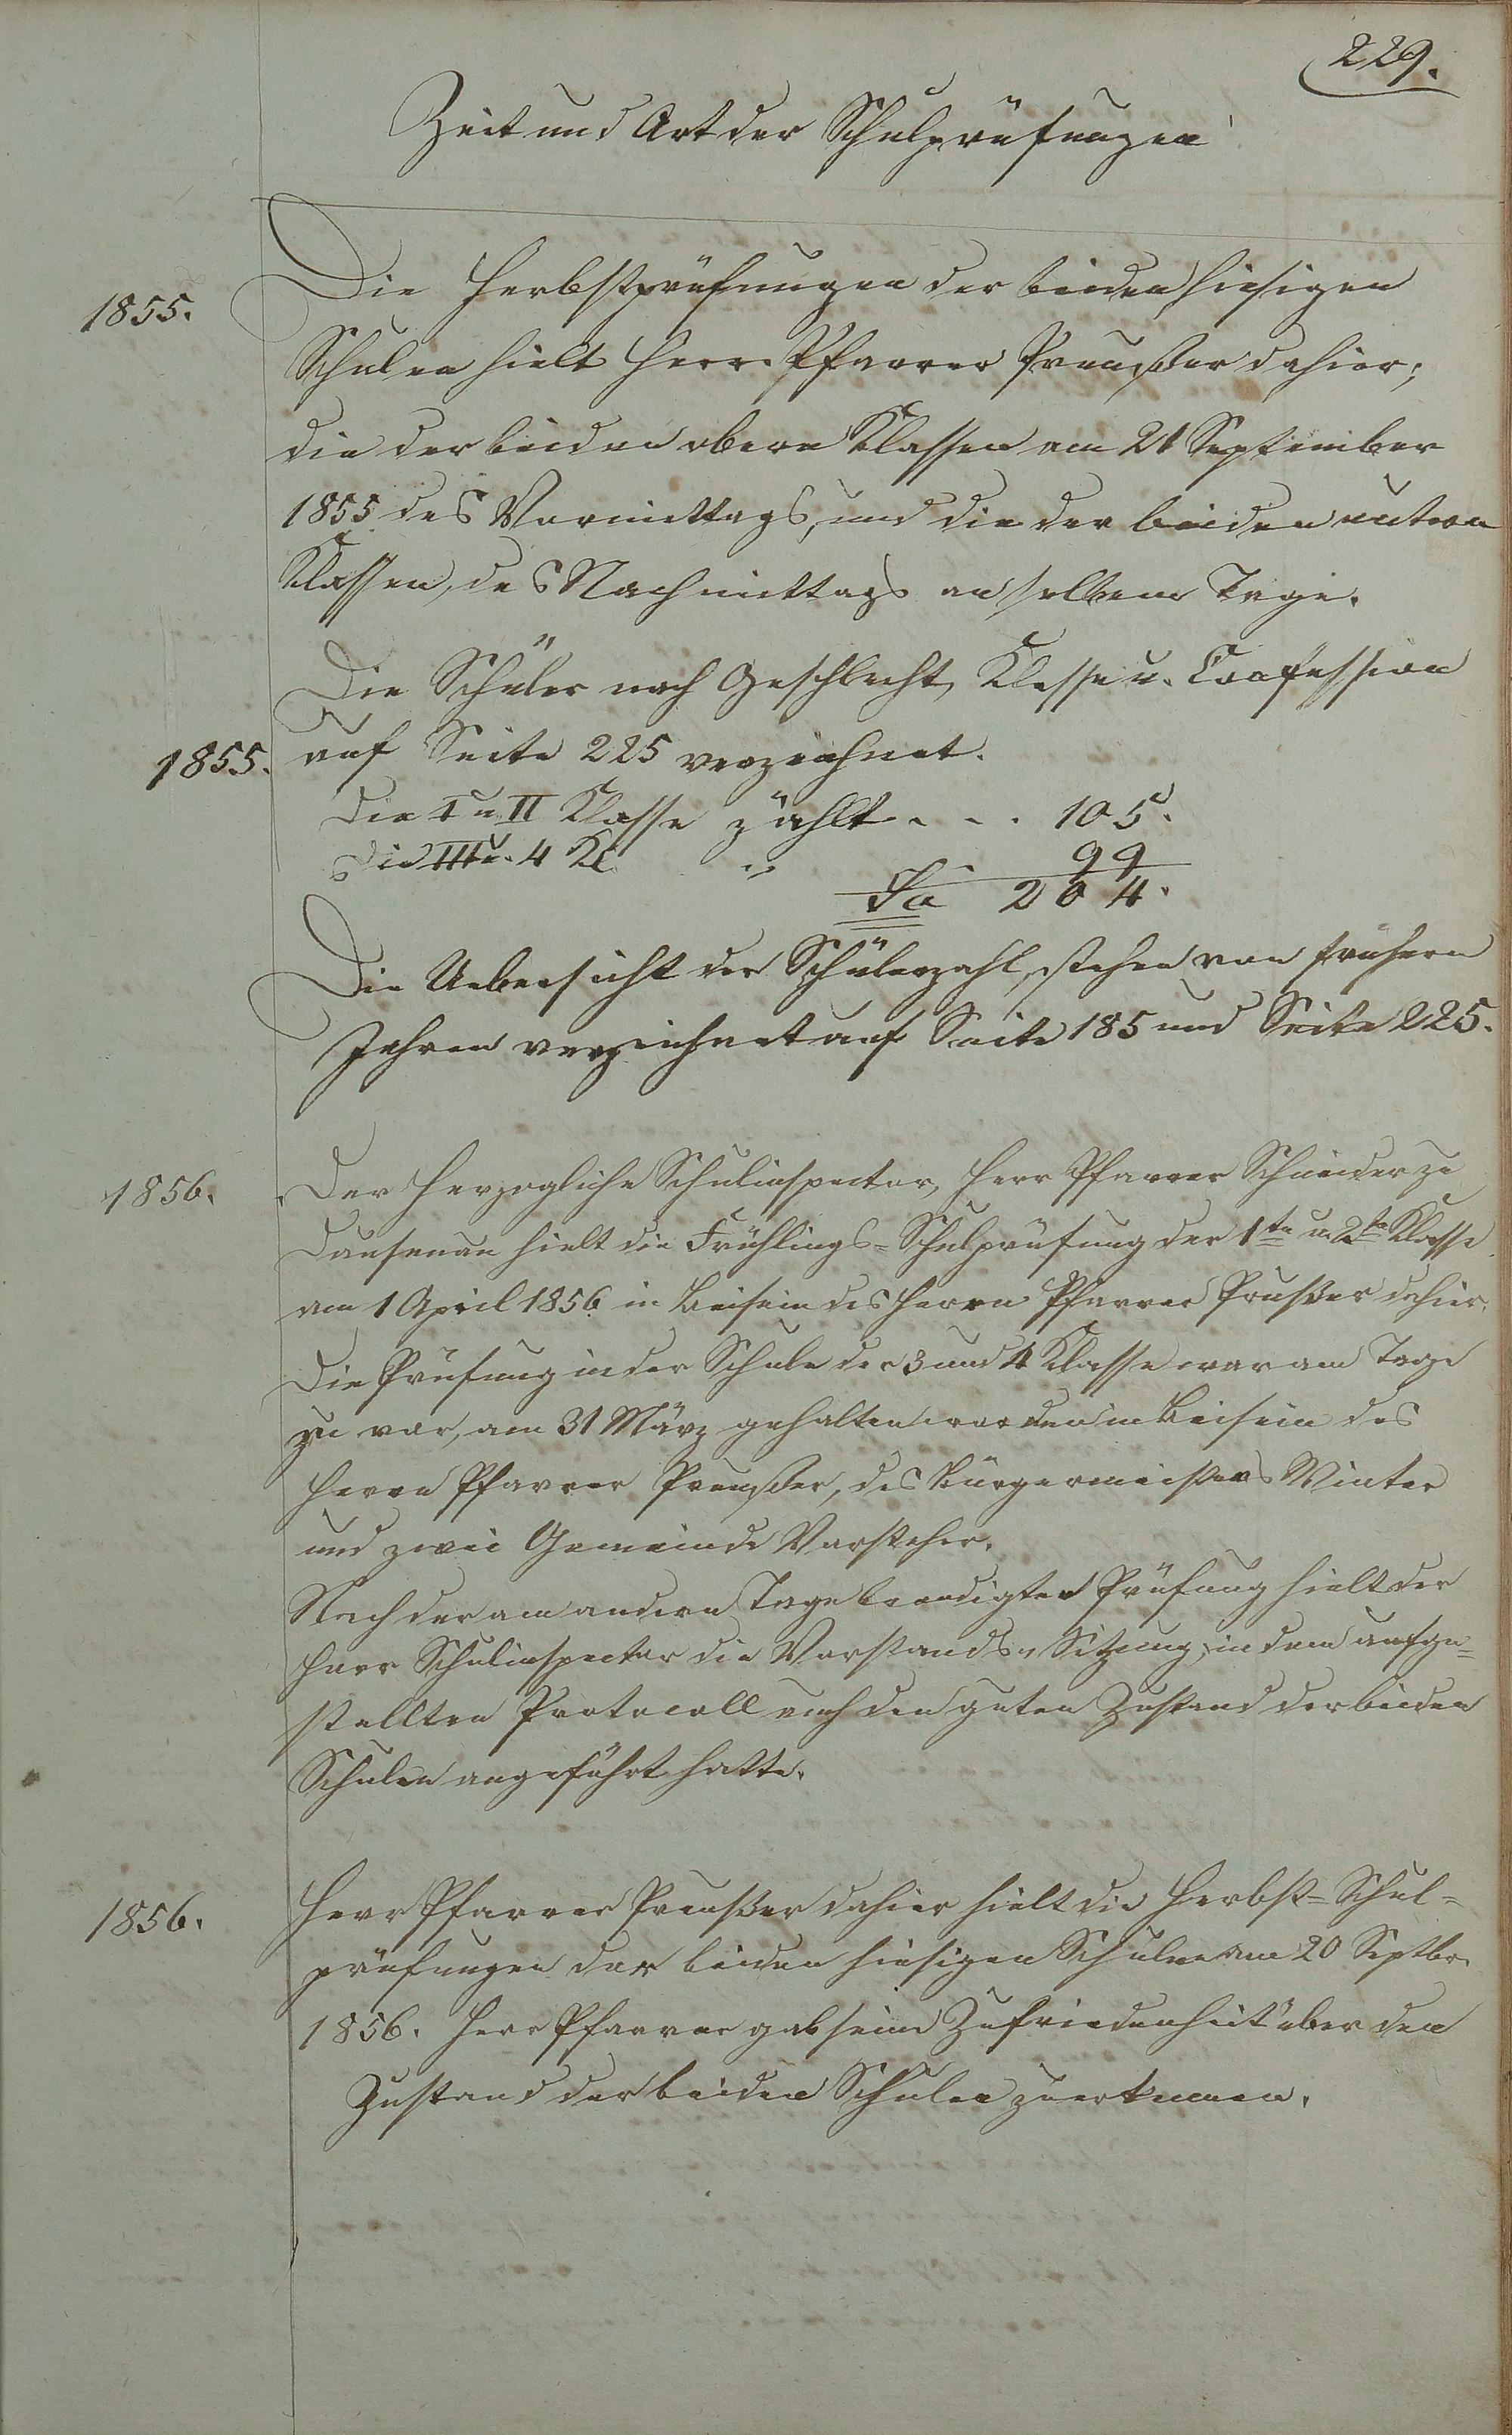 229.
Zeit und Art der Schulprüfungen
1855. Die Herbstprüfungen der beiden hiesigen
Schulen hielt Herr Pfarrer Preußer dahier;
die der beiden obern Klassen am 21 September
1855 des Vormittags, und die der beiden untern
Klassen, des Nachmittags an selbem Tage.
Die Schüler nach Geschlecht, Klasse u. Confession
1855. auf Seite 225 verzeichnet.
Die I u II Klasse zählt . . . 105.
Die III u. 4 Kl. " 99
Sa 204.
Die Uebersicht der Schülerzahl, stehen von frühern
Jahren verzeichnet auf Seite 185 und Seite 225.
1856. Der Herzogliche Schulinspector, Herr Pfarrer Schneider zu
Dausenau hielt die Frühlings-Schulprüfung der 1te u. 2te Klasse
am 1 April 1856 in Beisein des Herrn Pfarrer Preußer dahier.
Die Prüfung in der Schule der 3 und 4 Klasse war am Tage
zu vor, am 31 März gehalten worden in Beisein des
Herrn Pfarrer Preußer, des Bürgermeisters Winter
und zwei Gemeinde Vorsteher.
Nach der am andern Tage beendigten Prüfung hielt der
Herr Schulinspector die Vorstands-Sitzung, in dem aufge=
stellten Protocoll auch den guten Zustand der beiden
Schulen angeführt hatte.
1856. Herr Pfarrer Preußer dahier hielt die Herbst-Schul=
prüfungen der beiden hiesigen Schulen am 20 Septbr.
1856. Herr Pfarrer gab seine Zufriedenheit über den
Zustand der beiden Schulen zu erkennen.